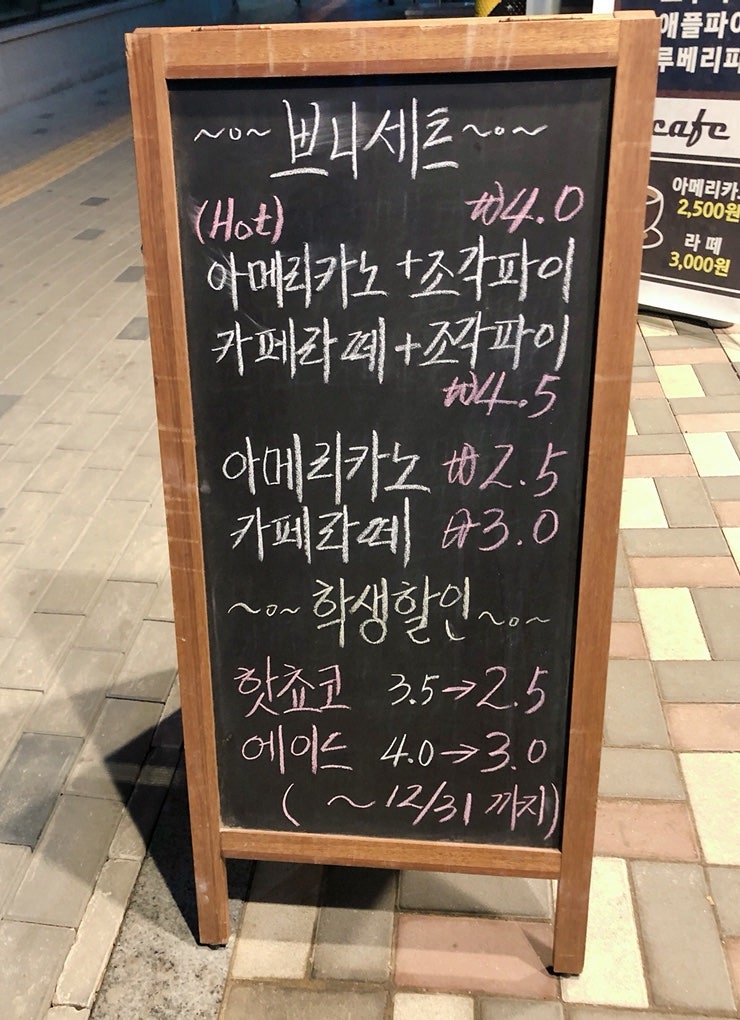 ~o~ 쁘니세트 ~o~
(Hot) ₩4.0
아메리카노 +조각파이
카페라떼 +조각파이
₩4.5
아메리카노 ₩2.5
카페라떼 ₩3.0
~o~ 학생할인 ~o~
핫쵸코 3.5→2.5
에이드 4.0→3.0
( ~12/31 까지)
애플파이
루베리파
cafe
아메리카노
2,500원
라떼
3,000원